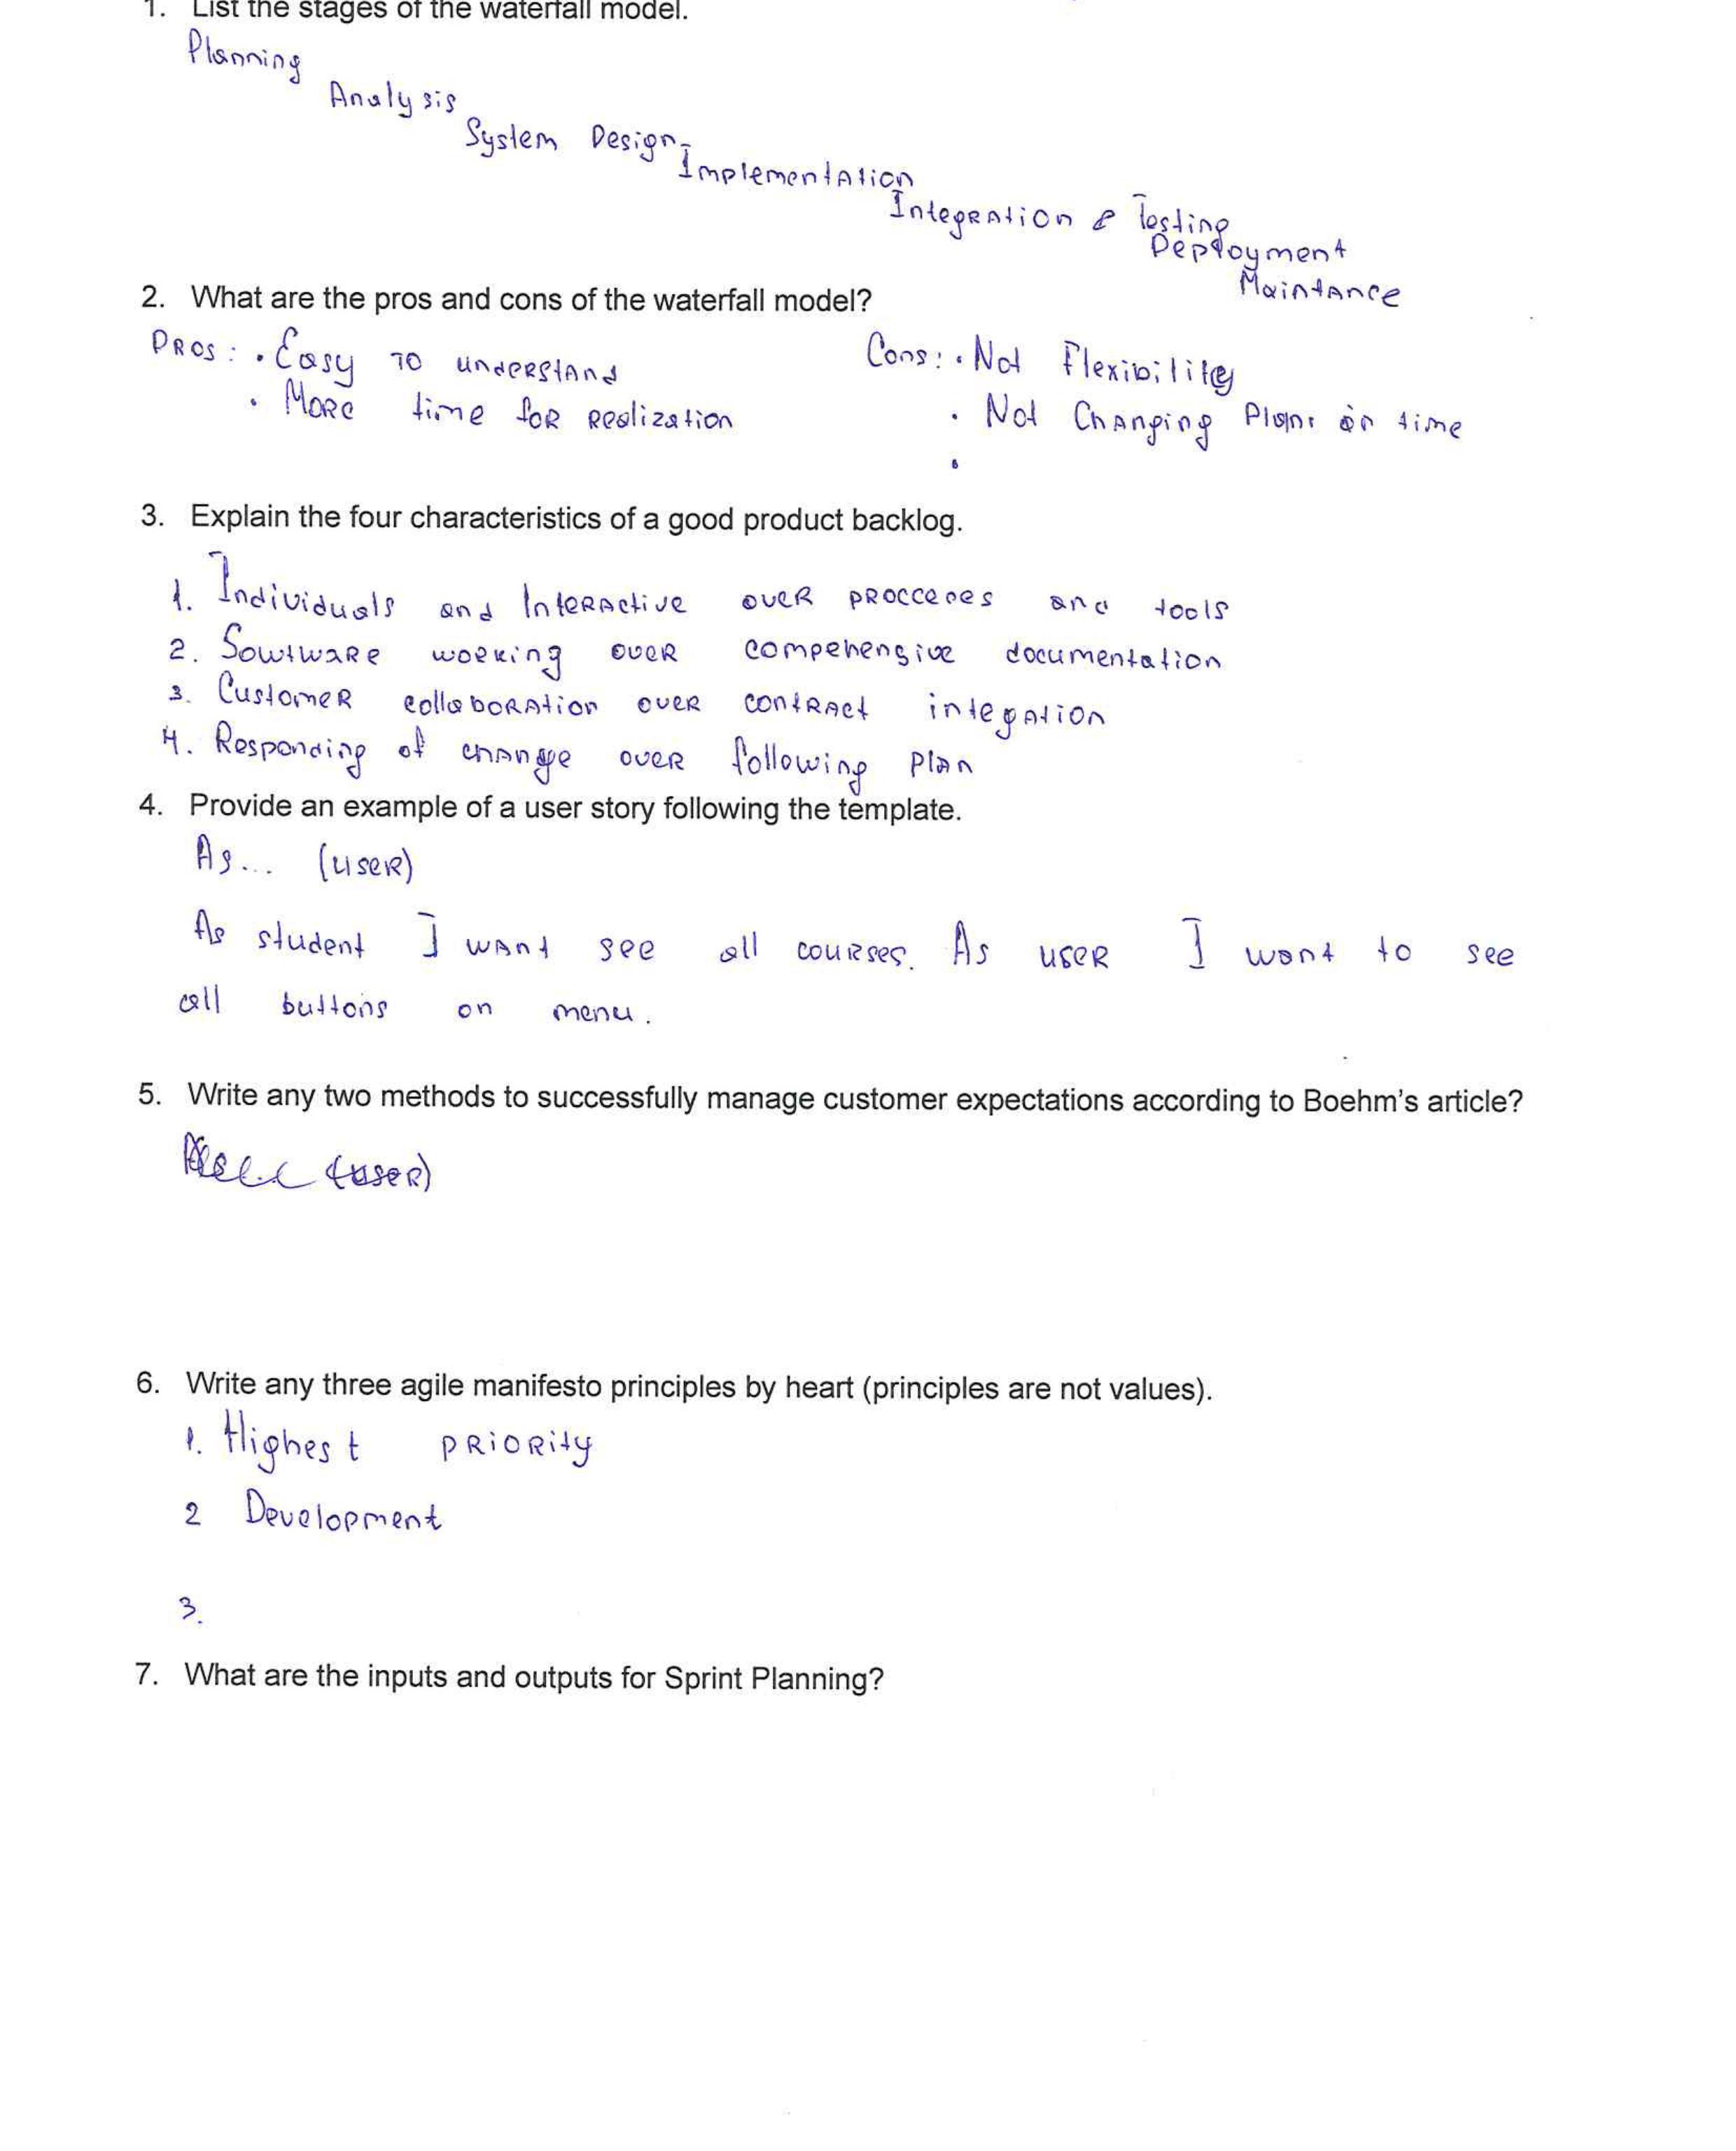 1. List the stages of the waterfall model.
Planning
Analysis
System Design
Implementation
Integration & Testing
Deployment
Maintance
2. What are the pros and cons of the waterfall model?
Pros: • Easy to understand
• More time for realization
Cons: • Not Flexibility
• Not Changing Plans in time
•
3. Explain the four characteristics of a good product backlog.
1. Individuals and Interactive over procceces and tools
2. Sowtware working over compehensive documentation
3. Customer collaboration over contract integation
4. Responding of change over following plan
4. Provide an example of a user story following the template.
As... (user)
As student I want see all courses. As user I want to see
all buttons on menu.
5. Write any two methods to successfully manage customer expectations according to Boehm's article?
(user)
6. Write any three agile manifesto principles by heart (principles are not values).
1. Highest priority
2 Development
3.
7. What are the inputs and outputs for Sprint Planning?